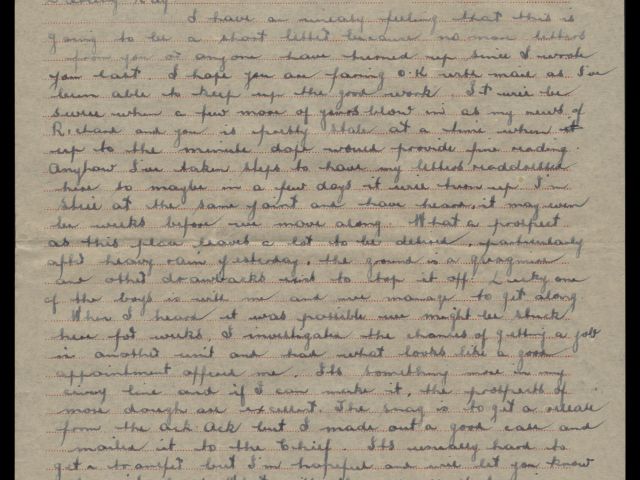 I have an uneasy feeling that this is
going to be a short letter because no more letters
from you or anyone have turned up since I wrote
you last. I hope you are faring O.K with mail as I've
been able to keep up the good work. It will be
swell when a few more of yours blow in as my news of
Richard and you is pretty stale at a time when it
up to the minute dope would provide fine reading.
Anyhow I've taken steps to have my letters readdressed
here so maybe in a few days it will turn up. I'm
still at the same joint and have heard, it may even
be weeks before we move along. What a prospect
as this place leaves a lot to be desired, particularly
after heavy rain yesterday, the ground is a quagmire
and other drawbacks just to top it off. Lucky one
of the boys is with me and we manage to get along
When I heard it was possible we might be stuck
here for weeks, I investigated the chances of getting a job
in another unit and had what looks like a good
appointment offered me. It's something more in my
civvy line and if I can make it, the prospects of
more dough are excellent. The snag is to get a release
from the Ack Ack but I made out a good case and
mailed it to the Chief. It's usually hard to
get a transfer but I'm hopeful and will let you know